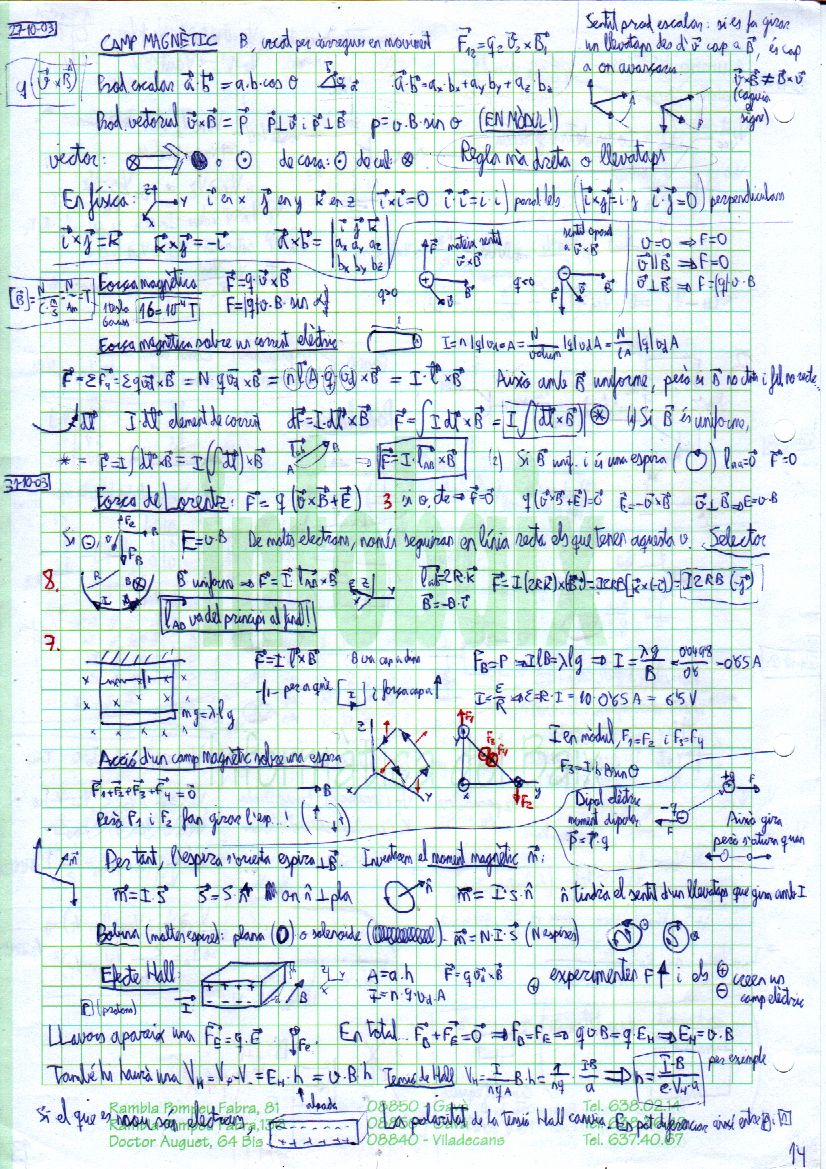 27-10-03
CAMP MAGNÈTIC B, creat per càrregues en moviment F₁₂=q₂·v₂×B₁
Sentit prod escalar: si es fa girar
un llevataps des d'v cap a B, és cap
a on avançaria.
q(v×B)
Prod. escalar a·b = a·b·cos θ a·b=ax·bx+ay·by+az·bz
v×B ≠ B×v
(canvia
el
signe)
Prod. vectorial v×B = P P⊥v i P⊥B p=v·B·sin θ (EN MÒDUL!)
vector: o de cara: de cul: Regla mà dreta o llevataps
En física: i en x j en y k en z (i×i=0 i·i=i·i) paral·lels (i×j=i·j i·j=0) perpendiculars
i×j=k k×j=-i a×b= |i j k|
|ax ay az|
|bx by bz|
mateix sentit v×B q>0
sentit oposat a v×B q<0
v=0 ⇒ F=0
v∥B ⇒ F=0
v⊥B ⇒ F=|q|v·B
Força magnètica F=q·v×B
1G=10⁻⁴T F=|q|·v·B·sin α
Força magnètica sobre un corrent elèctric I=n|q|vd·A=N/volum |q|vd A=N/lA |q|vd A
F=ΣFq=Σqvd×B=N·qvd×B=(nlA·q·vd)×B=I·l×B Això amb B uniforme, però si B no ho és i fil no recte
dl I·dl element de corrent dF=I·dl×B F=∫I dl×B=I∫(dl×B) * 1) Si B és uniforme,
* = F=I∫dl×B=I(∫dl)×B ⇒ F=I·lAB×B 2) Si B unif. i és una espira lAA=0 F=0
31-10-03
Força de Lorentz: F=q(v×B+E) 3 si v, cte ⇒ F=0 q(v×B+E)=0 E=-v×B v⊥B⇒E=v·B
Si E=v·B De molts electrons, només seguiran en línia recta els que tenen aquesta v. Selector
8. B uniforme ⇒ F=I·lAB×B lAB=2R·k B=-B·i F=I(2Rk)×(B)=I2RB[k×(-i)]=I2RB(-j)
lAB va del principi al final!
7.
F=I·l×B B va cap a dins FB=P ⇒ IlB=λlg ⇒ I=λg/B = 0'65A
per a què I i força cap a ↑ I=E/R ⇒ E=R·I=10·0'65A=6'5V
mg=λlg
Acció d'un camp magnètic sobre una espira
I en mòdul, F₁=F₂ i F₃=F₄
F₁+F₂+F₃+F₄=0 F₃=I·b·B·sinθ
Però F₁ i F₂ fan girar l'esp..!
Dipol elèctric
moment dipolar
P=r·q
Això gira
però s'atura quan
Per tant, l'espira s'orienta espira⊥B. Inventem el moment magnètic m:
m=I·S S=S·n on n⊥pla m=I·S·n n tindrà el sentit d'un llevataps que gira amb I
Bobina (moltes espires): plana o solenoide m=N·I·S (N espires) N S
Efecte Hall A=a·h F=qvd×B experimenten F↑ i els creen un
camp elèctric
(protons) I I=n·q·vd·A
Llavors apareix una FE=q·E Fe En total... FB+FE=0 ⇒ FB=FE ⇒ qvB=q·EH ⇒ EH=v·B
També hi haurà una VH=V₊-V₋=EH·h=v·B·h Tensió de Hall VH=I/nqA B·h=1/nq·IB/a ⇒ n=I·B/e·VH·a per exemple
Si el que es mouen són electrons, Les polaritats de la tensió Hall canvia. Es pot diferenciar així entre P i N
Rambla Pompeu Fabra, 81 08850 - Gavà Tel. 638.02.14
Doctor Auguet, 64 Bis 08840 - Viladecans Tel. 637.40.67
14